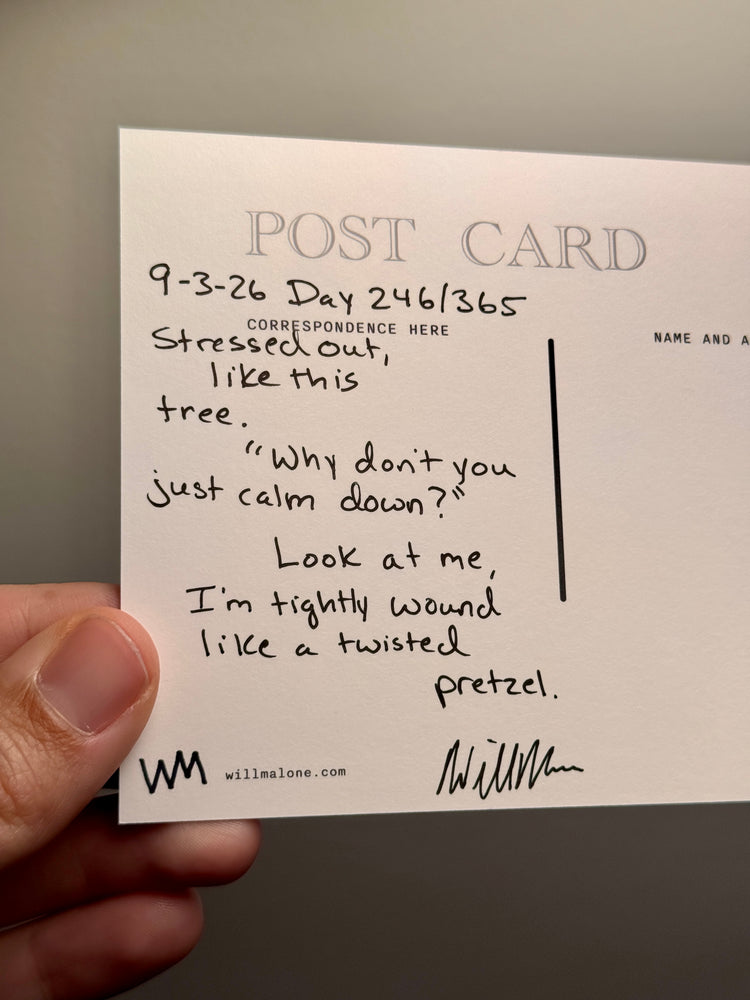 POST CARD
9-3-26 Day 246/365
CORRESPONDENCE HERE
NAME AND A
Stressed out,
like this
tree.
"Why don't you
just calm down?"
Look at me,
I'm tightly wound
like a twisted
pretzel.
WM willmalone.com